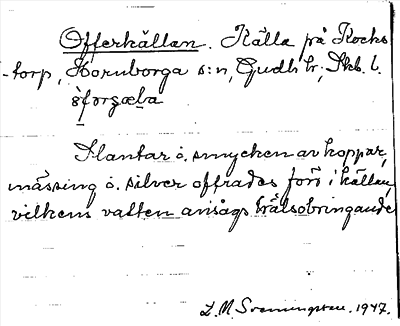 Offerkällan. Källa på Kocks
-torp, Hornborga s:n, Gudh. hr; Skb. l.
Slantar o. smycken av koppar,
mässing o. silver offrades förr i källan,
vilkens vatten ansågs hälsobringande
L. M. Svenungsson. 1947.